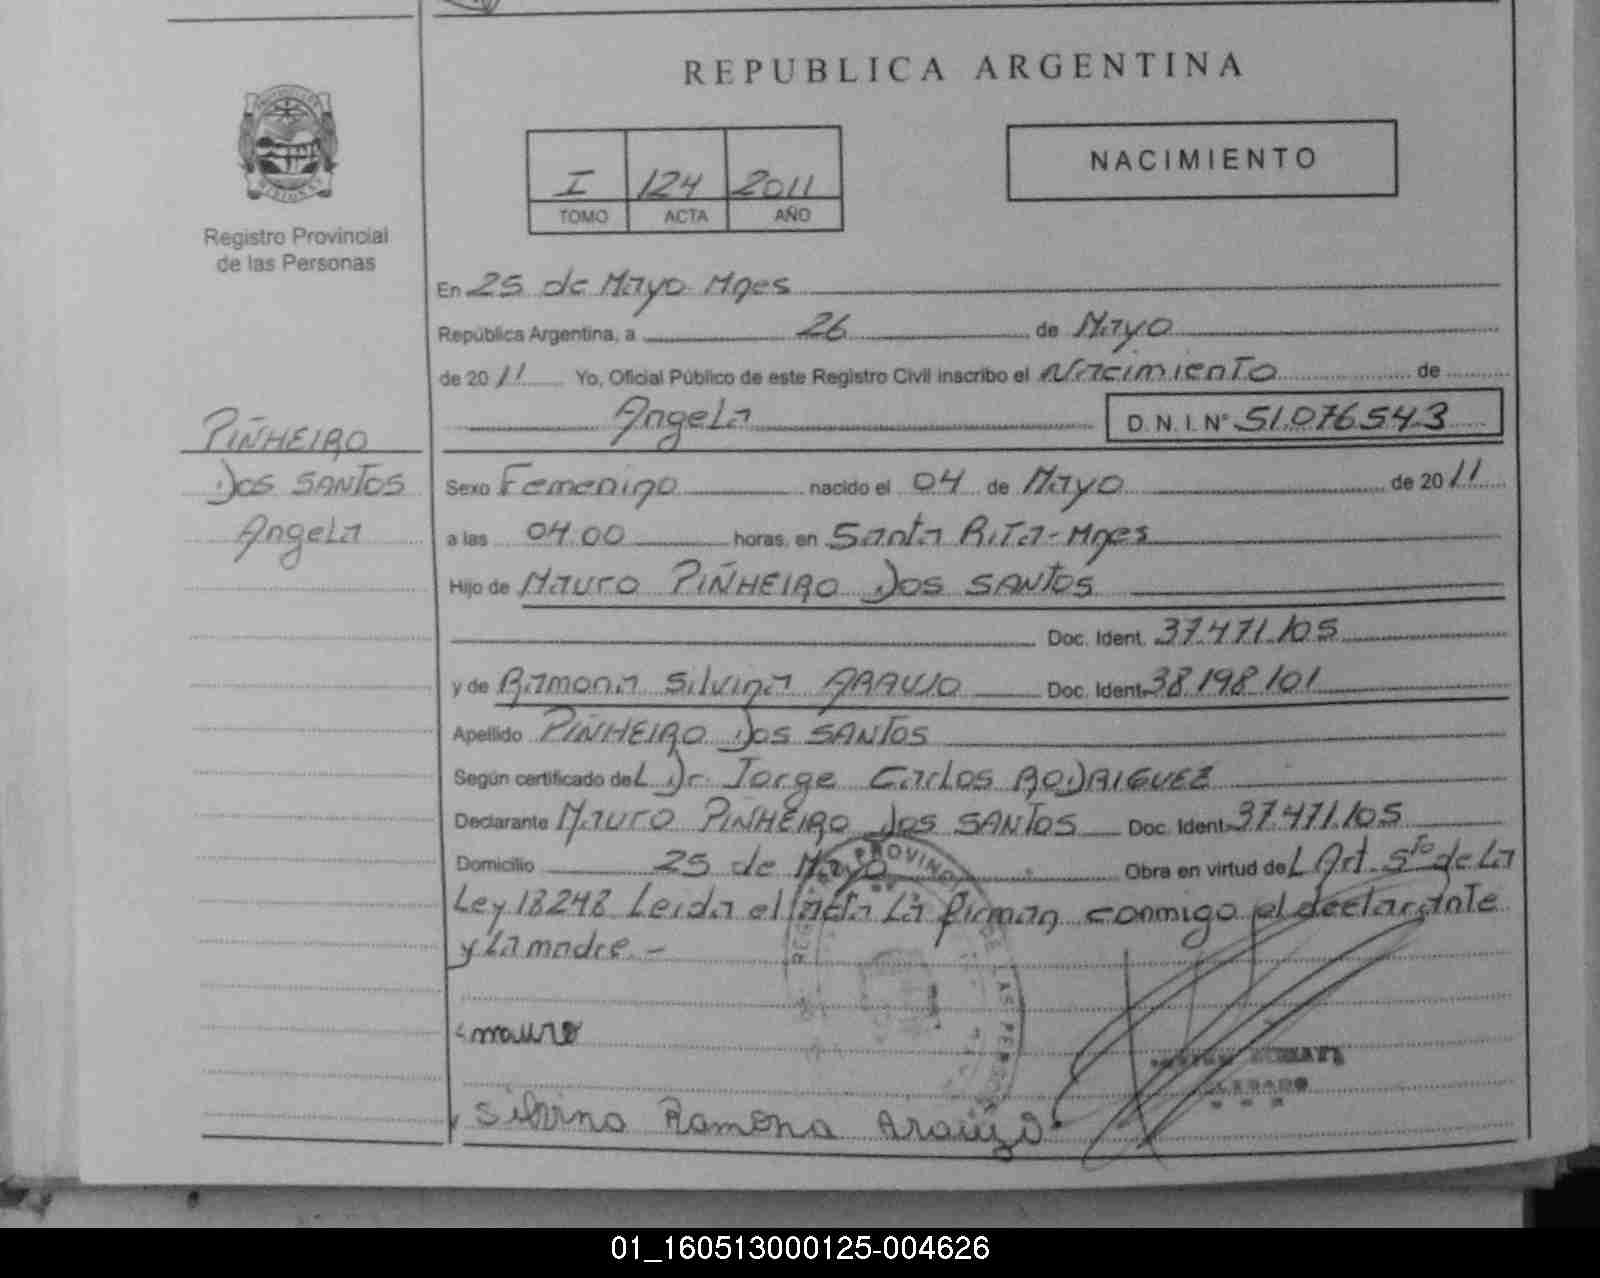 REPUBLICA ARGENTINA
I 124 2011
TOMO ACTA AÑO
NACIMIENTO
Registro Provincial
de las Personas
PIÑHEIRO
DOS SANTOS
Angela
En 25 de Mayo Mnes
República Argentina, a 26 de Mayo
de 2011 Yo, Oficial Público de este Registro Civil inscribo el Nacimiento de
Angela D.N.I. Nº 51.076543
Sexo Femenino nacido el 04 de Mayo de 2011
a las 04.00 horas, en Santa Rita-Mnes
Hijo de Mauro PIÑHEIRO DOS SANTOS
Doc. Ident. 37.471.105
y de Ramona Silvina ARAUJO Doc. Ident. 38.198.101
Apellido PIÑHEIRO DOS SANTOS
Según certificado del Dr. Jorge Carlos RODRIGUEZ
Declarante Mauro PIÑHEIRO DOS SANTOS Doc. Ident. 37.471.105
Domicilio 25 de Mayo Obra en virtud del Art. 5to de La
Ley 18248 Leida el acta La firman conmigo el declarante
y La madre.-
mauro
Silvina Ramona Araujo
01_160513000125-004626